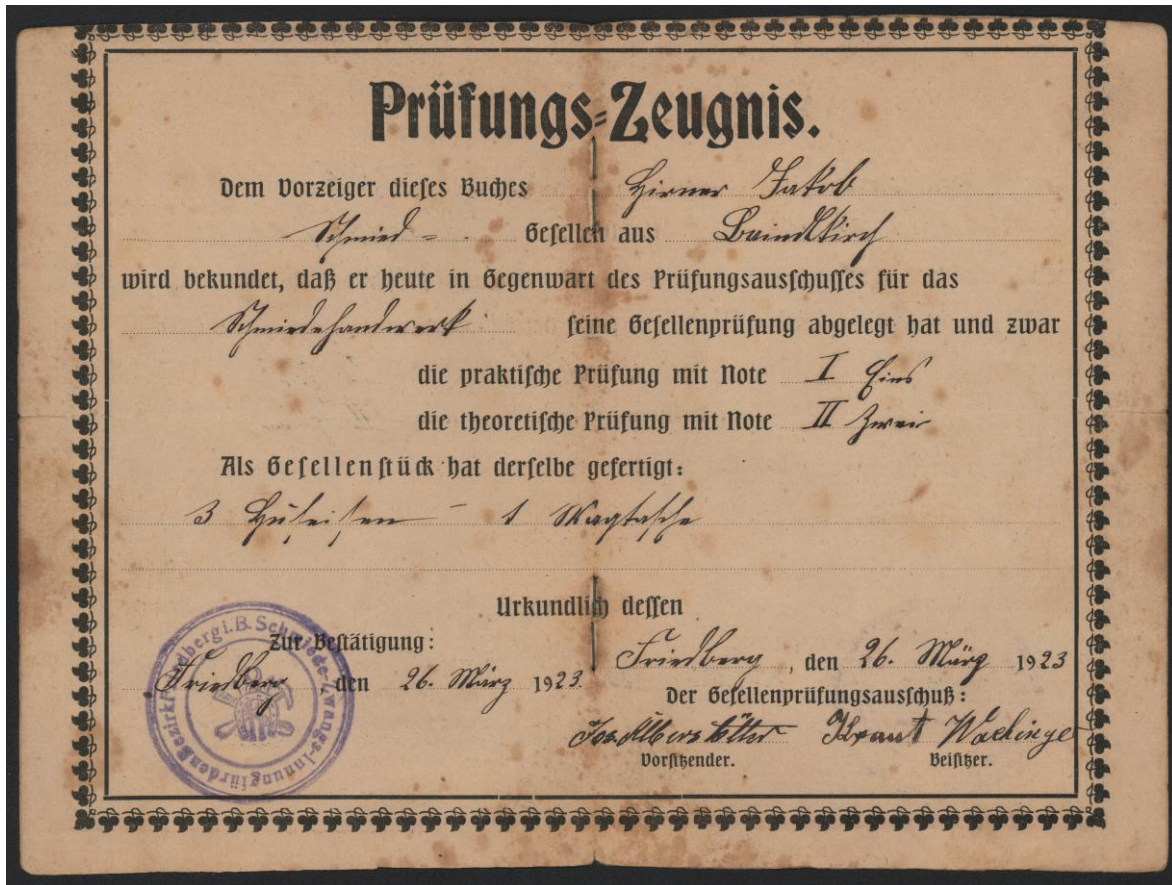 Prüfungs-Zeugnis.
Dem Vorzeiger dieses Buches Hirner Jakob
Schmied- Gesellen aus Baindlkirch
wird bekundet, daß er heute in Gegenwart des Prüfungsausschusses für das
Schmiedehandwerk seine Gesellenprüfung abgelegt hat und zwar
die praktische Prüfung mit Note I Eins
die theoretische Prüfung mit Note II Zwei
Als Gesellenstück hat derselbe gefertigt:
3 Hufeisen - 1
Urkundlich dessen
Zur Bestätigung:
Friedberg den 26. März 1923
Friedberg, den 26. März 1923
Der Gesellenprüfungsausschuß:
Jos. Krant
Vorsitzender. Beisitzer.
Schmiede-Zwangs-Innung für den Bezirk Friedberg i. B.